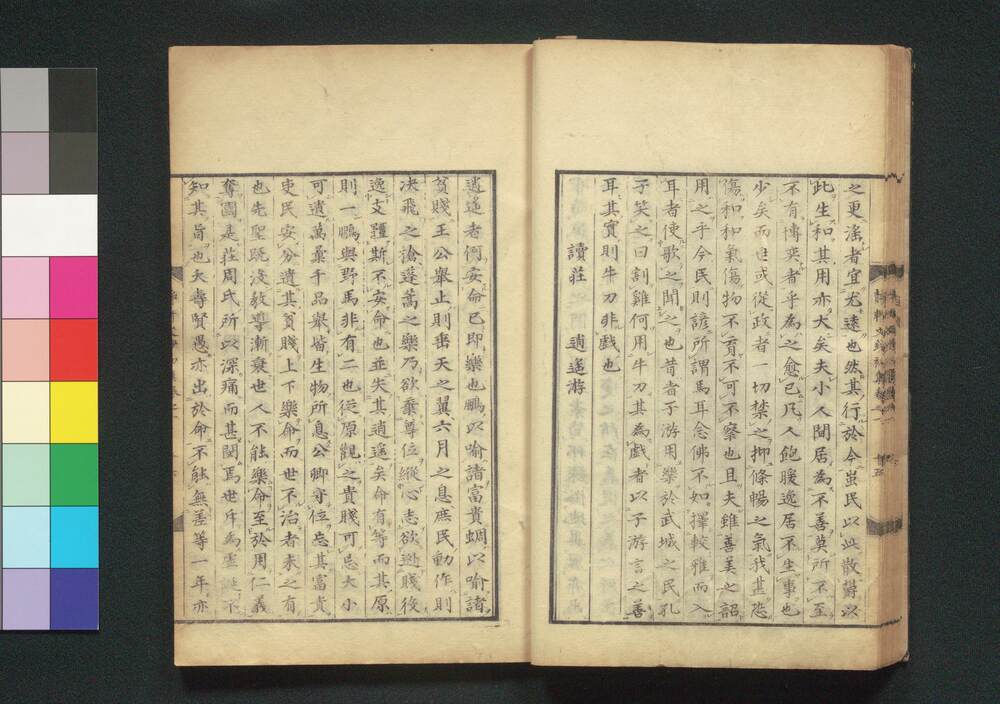 之更滛者宜尤遠也然其行於今虽民以此散欝以
此生和其用亦大矣夫小人間居為不善莫所不至
不有博奕者乎為之愈已凡人飽暖逸居不生事也
少矣而世或從政者一切禁之抑條暢之氣我甚恐
傷和和氣傷物不育不可不察也且夫雖善美之詔
用之乎今民則諺所謂馬耳念佛不如擇較雅而入
耳者使歌之聞之也昔者子游用樂於武城之民孔
子笑之曰割雞何用牛刀其為戯者以子游言之善
耳其實則牛刀非戯也
讀莊 逍遙游
逍遙者何安命已即樂也鵬以喻諸富貴蜩以喻諸
貧賤王公舉止則垂天之翼六月之息庶民動作則
决飛之滄蓬蒿之樂乃欲棄尊位縱心志欲逃賤役
逸支體斯不安命也並失其逍遙矣命有等而其原
則一鵬與野馬非有二也從原觀之貴賤可忘大小
可遺萬彙千品舉皆生物所息公卿守位忘其富貴
吏民安分遺其貧賤上下樂命而世不治者未之有
也先聖既淺教導漸衰世人不能樂命至於用仁義
奪國是莊周氏所以深痛而甚閔焉世斥為虛誕不
知其旨也夭壽賢愚亦出於命不能無差等一年亦